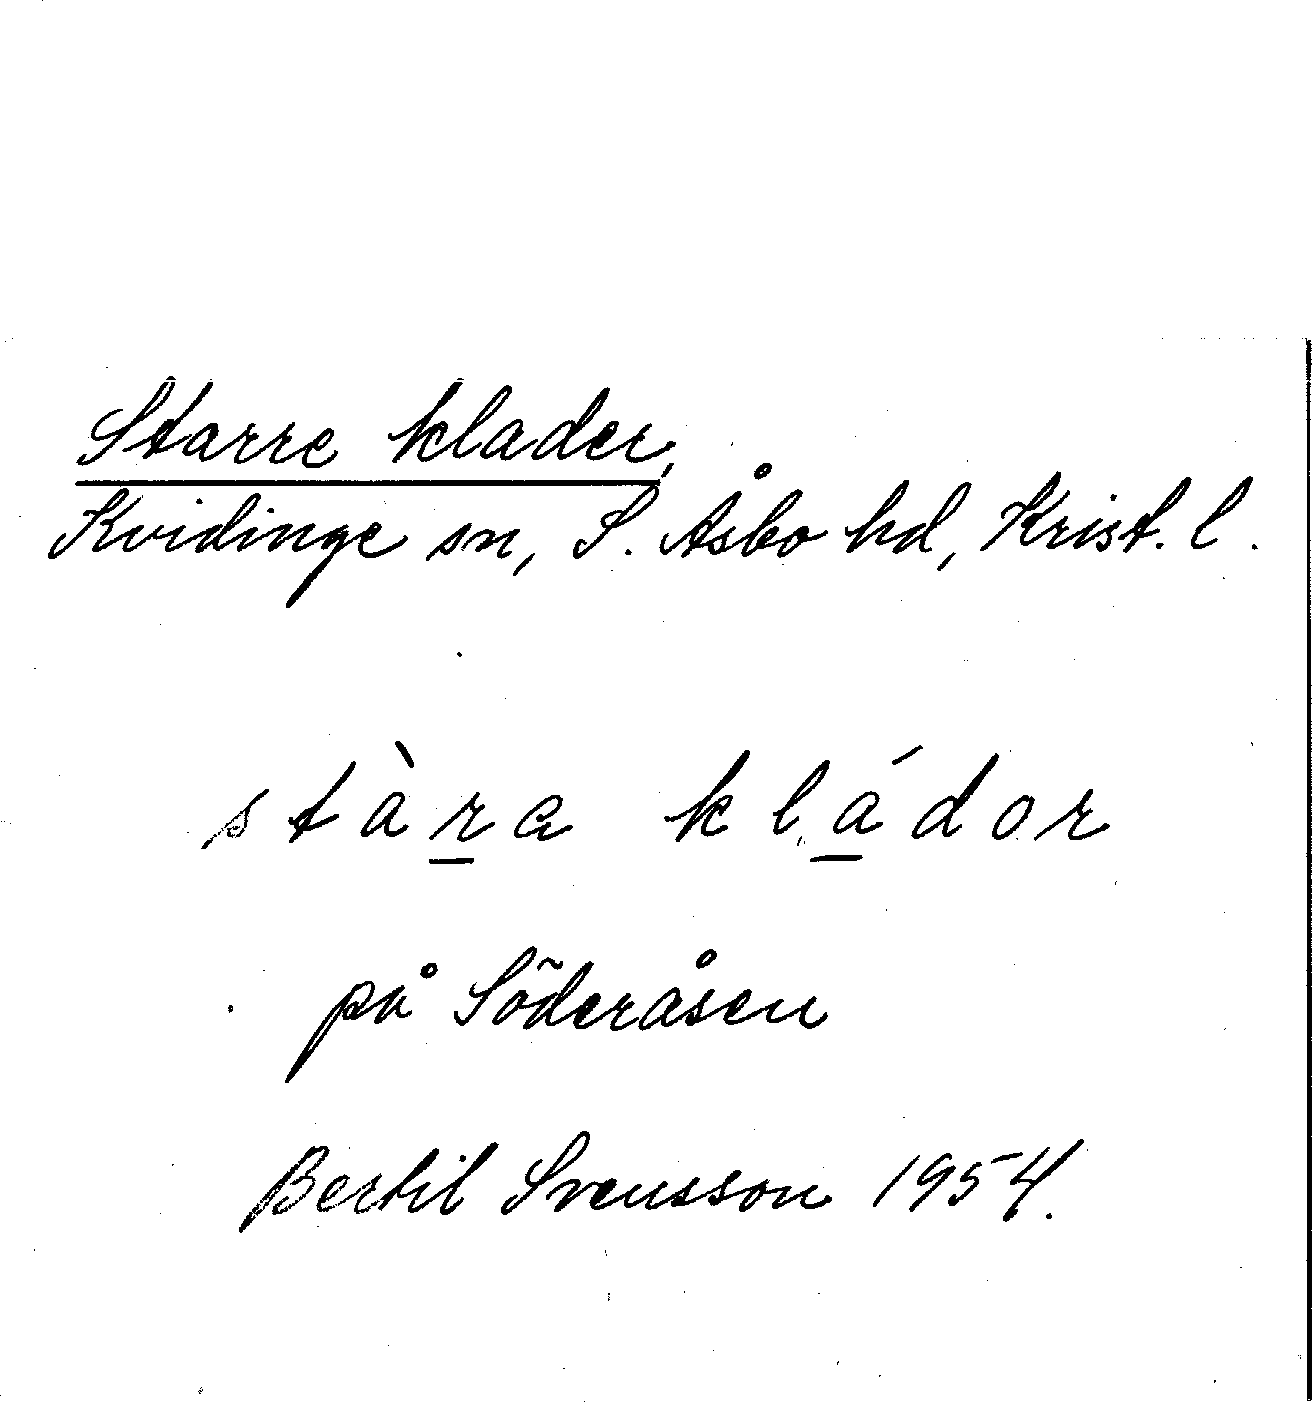 Starre klader,
Kvidinge sn, S. Åsbo hd, Krist. l.
stàra kládor
på Söderåsen
Bertil Svensson 1954.